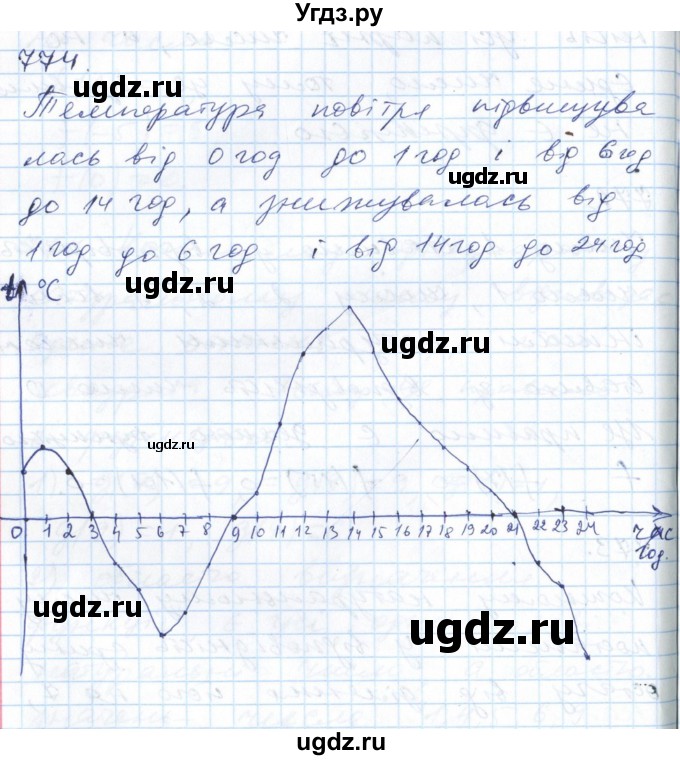 Угдз.ру
774.
Температура повітря підвищува
лась від 0 год до 1 год і від 6 год
до 14 год, а знижувалась від
1 год до 6 год і від 14 год до 24 год
ugdz.ru
ugdz.ru
ugdz.ru
t °C
ugdz.ru
ugdz.ru
0 1 2 3 4 5 6 7 8 9 10 11 12 13 14 15 16 17 18 19 20 21 22 23 24 час
год.
ugdz.ru
ugdz.ru
ugdz.ru